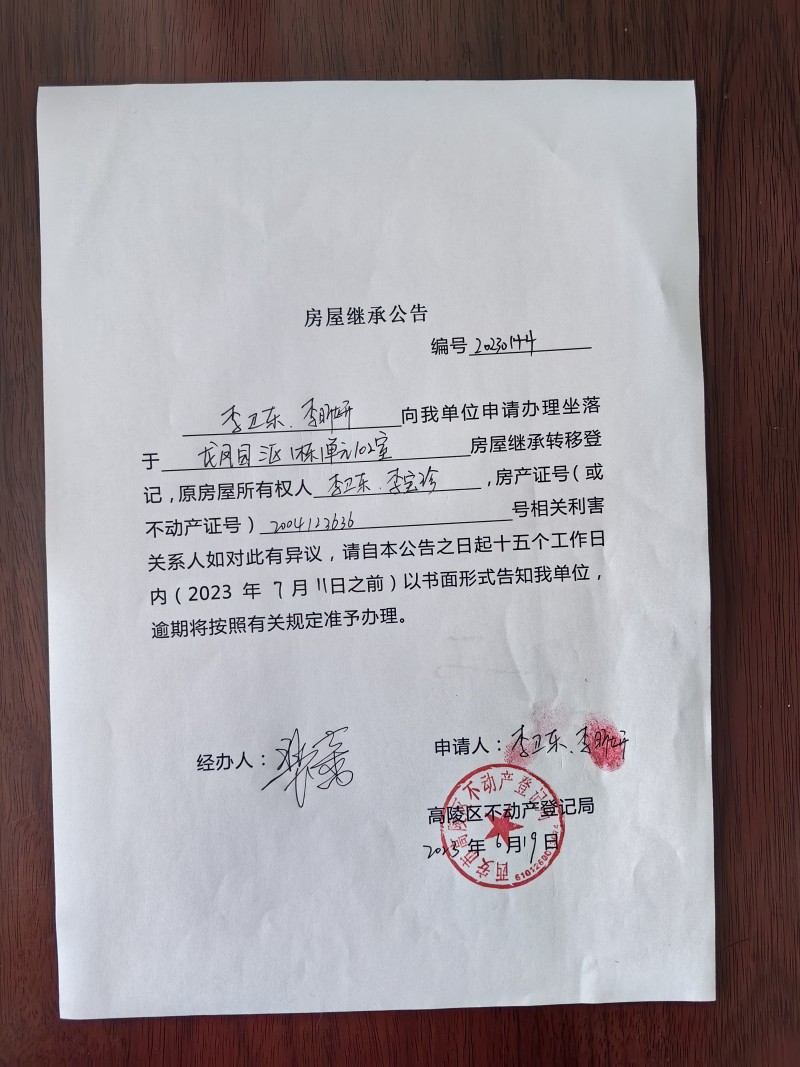 房屋继承公告
编号 20230144
李卫东、李昕妍 向我单位申请办理坐落
于 龙凤园三区1栋1单元102室 房屋继承转移登
记，原房屋所有权人 李卫东、李宝珍 ，房产证号（或
不动产证号） 2004123636 号相关利害
关系人如对此有异议，请自本公告之日起十五个工作日
内（2023 年 7 月 11日之前）以书面形式告知我单位，
逾期将按照有关规定准予办理。
经办人：
申请人：李卫东、李昕妍
高陵区不动产登记局
2023 年 6月19日
西安市高陵区不动产登记局